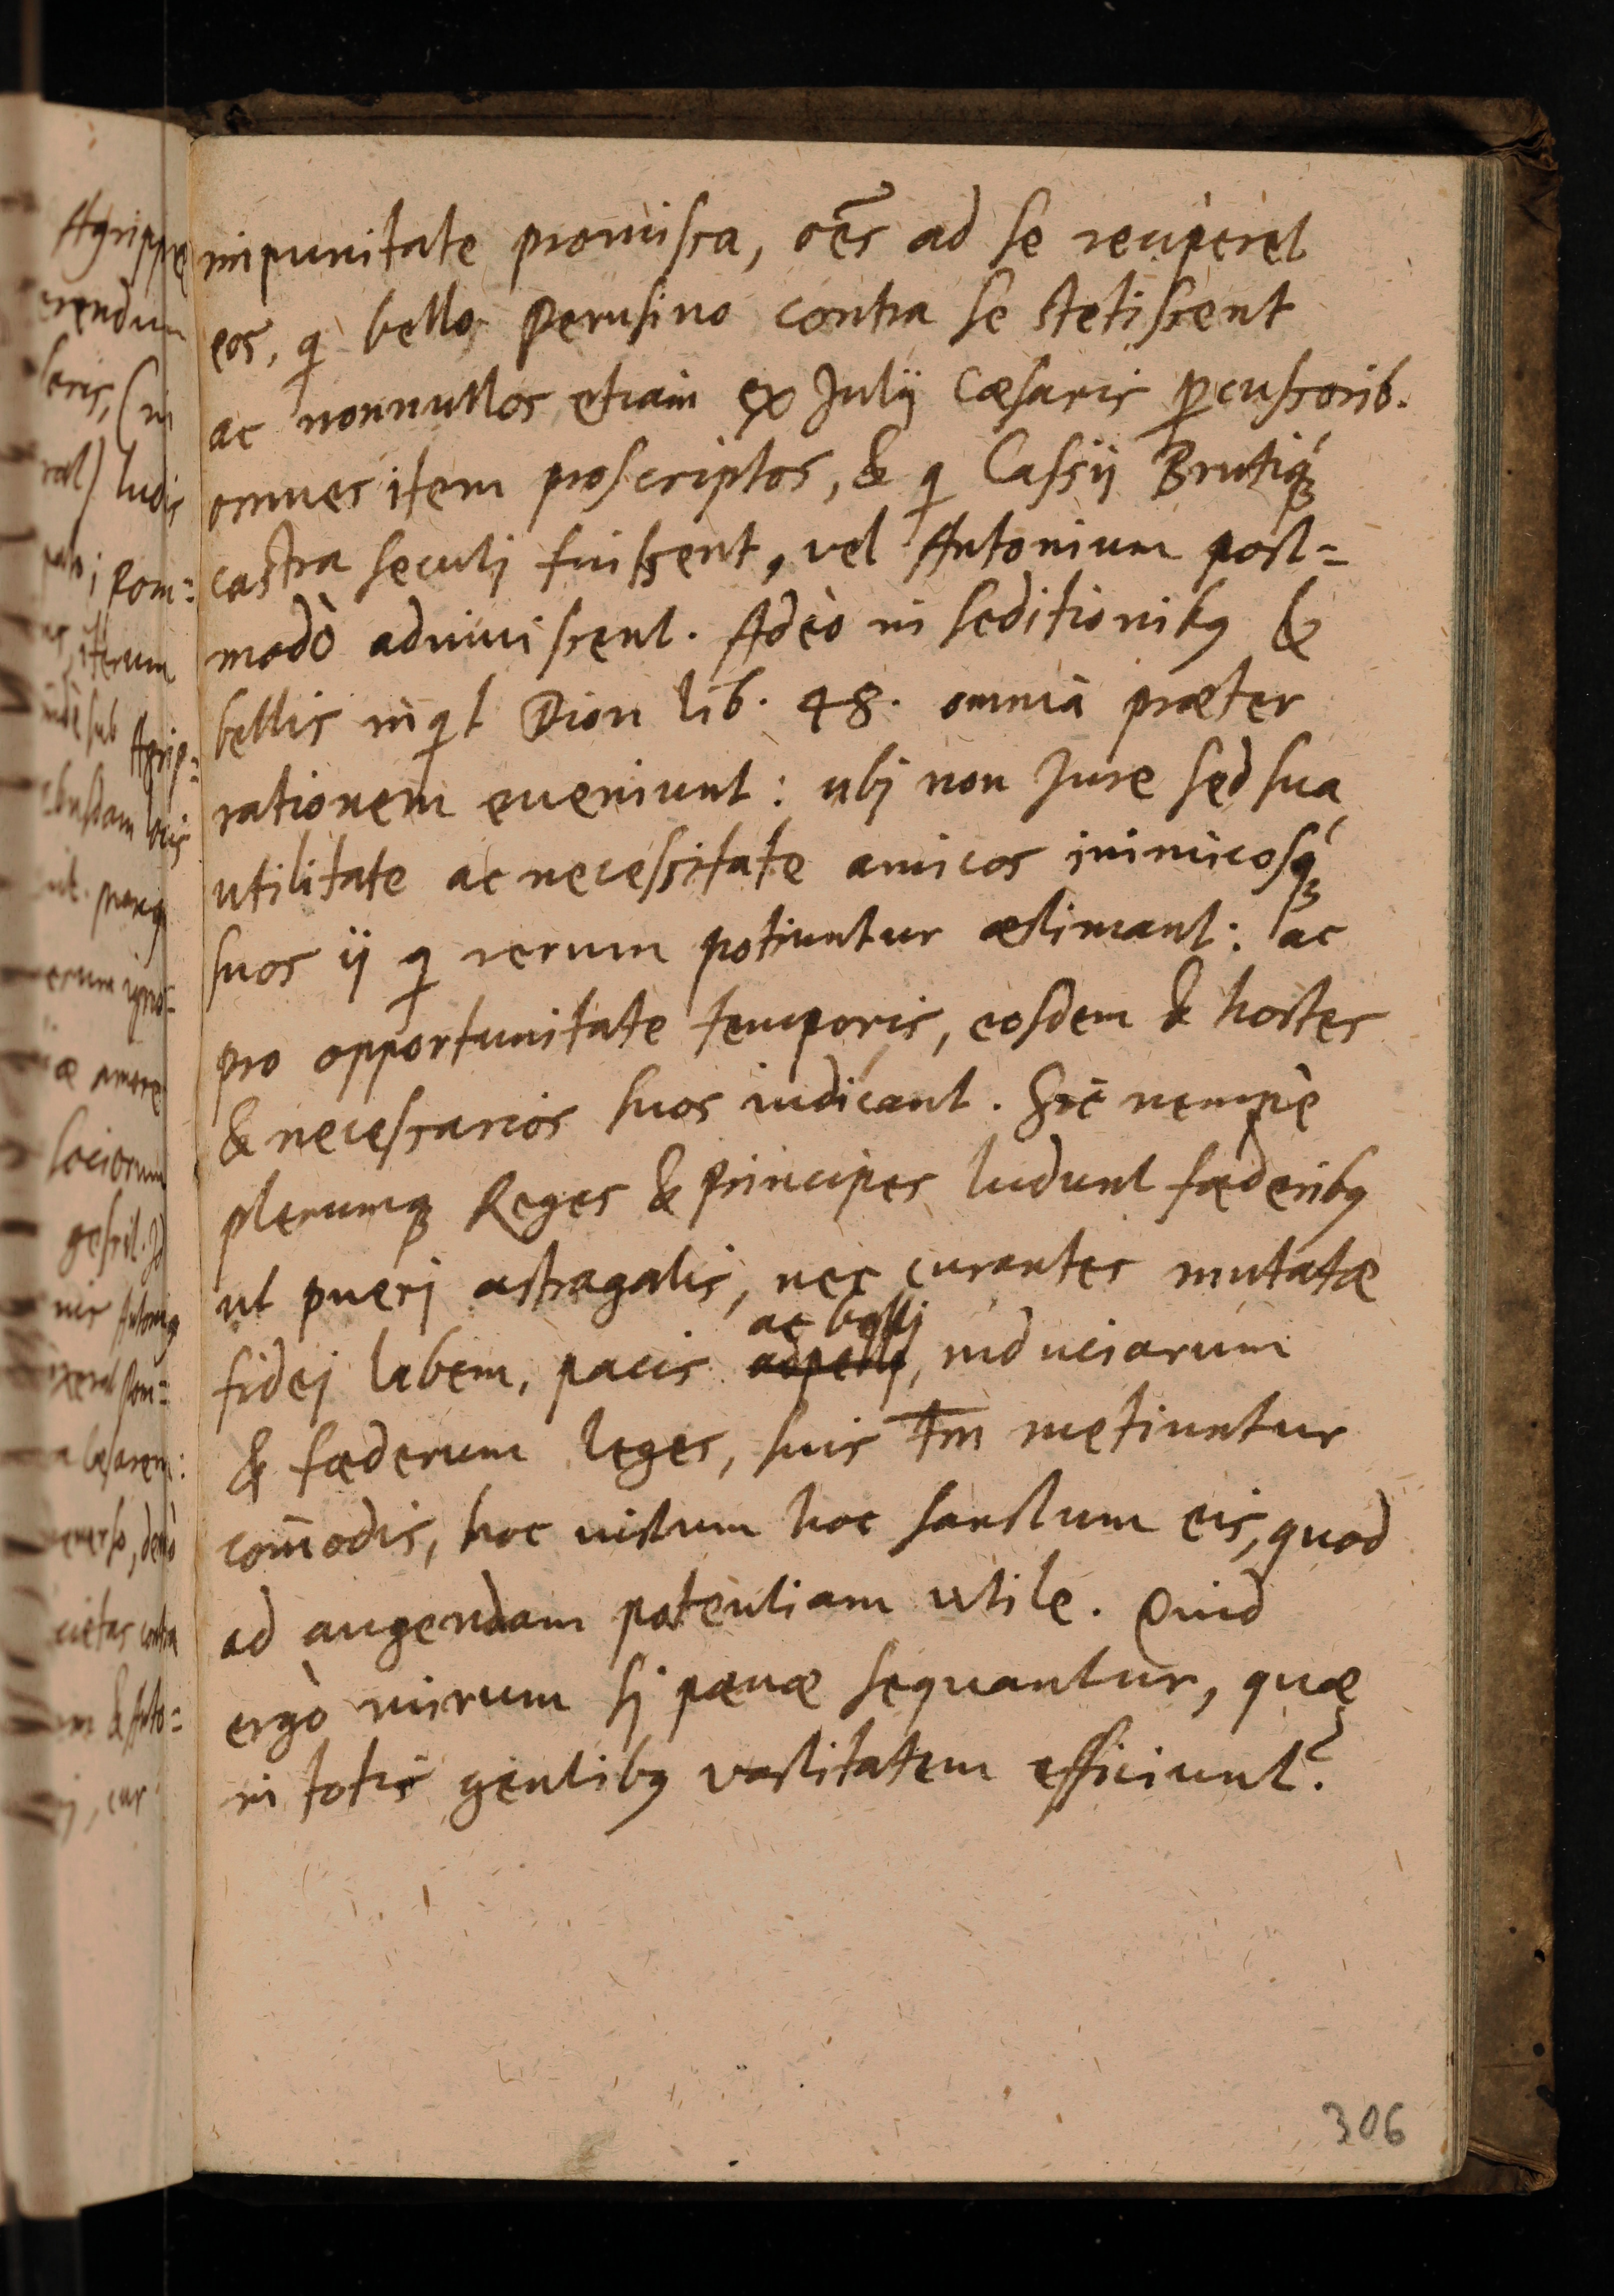 impunitate promissa, oēs ad se reciperet
eos, q bello Perusino contra se stetissent
ac nonnullos etiam ex Julij Cæsaris pcussorib.
omnes item proscriptos, & q Cassij Brutiq́
castra secuti fuissent, vel Antonium post=
modò adiuuissent. Adeò in seditionibꝰ &
bellis inqt Dion lib. 48. omnia præter
rationem eueniunt: ubi non Jure sed sua
utilitate ac necessitate amicos inimicosq́
suos ij q rerum potiuntur æstimant: ac
pro opportunitate temporis, eosdem & hostes
& necessarios suos iudicant. Sic nempè
plerumq Reges & Principes ludunt fæderibꝰ
ut pueri astragalis, nec curantes mutatæ
ac belli
fidei labem, pacis, induciarum
& fæderum leges, suis tm̄ metiuntur
com̄odis, hoc iustum hoc sanctum eis, quod
ad augendam potentiam utile. Quid
ergò mirum si pænæ sequantur, quæ
in totis gentibꝰ vastitatem efficiunt?
306